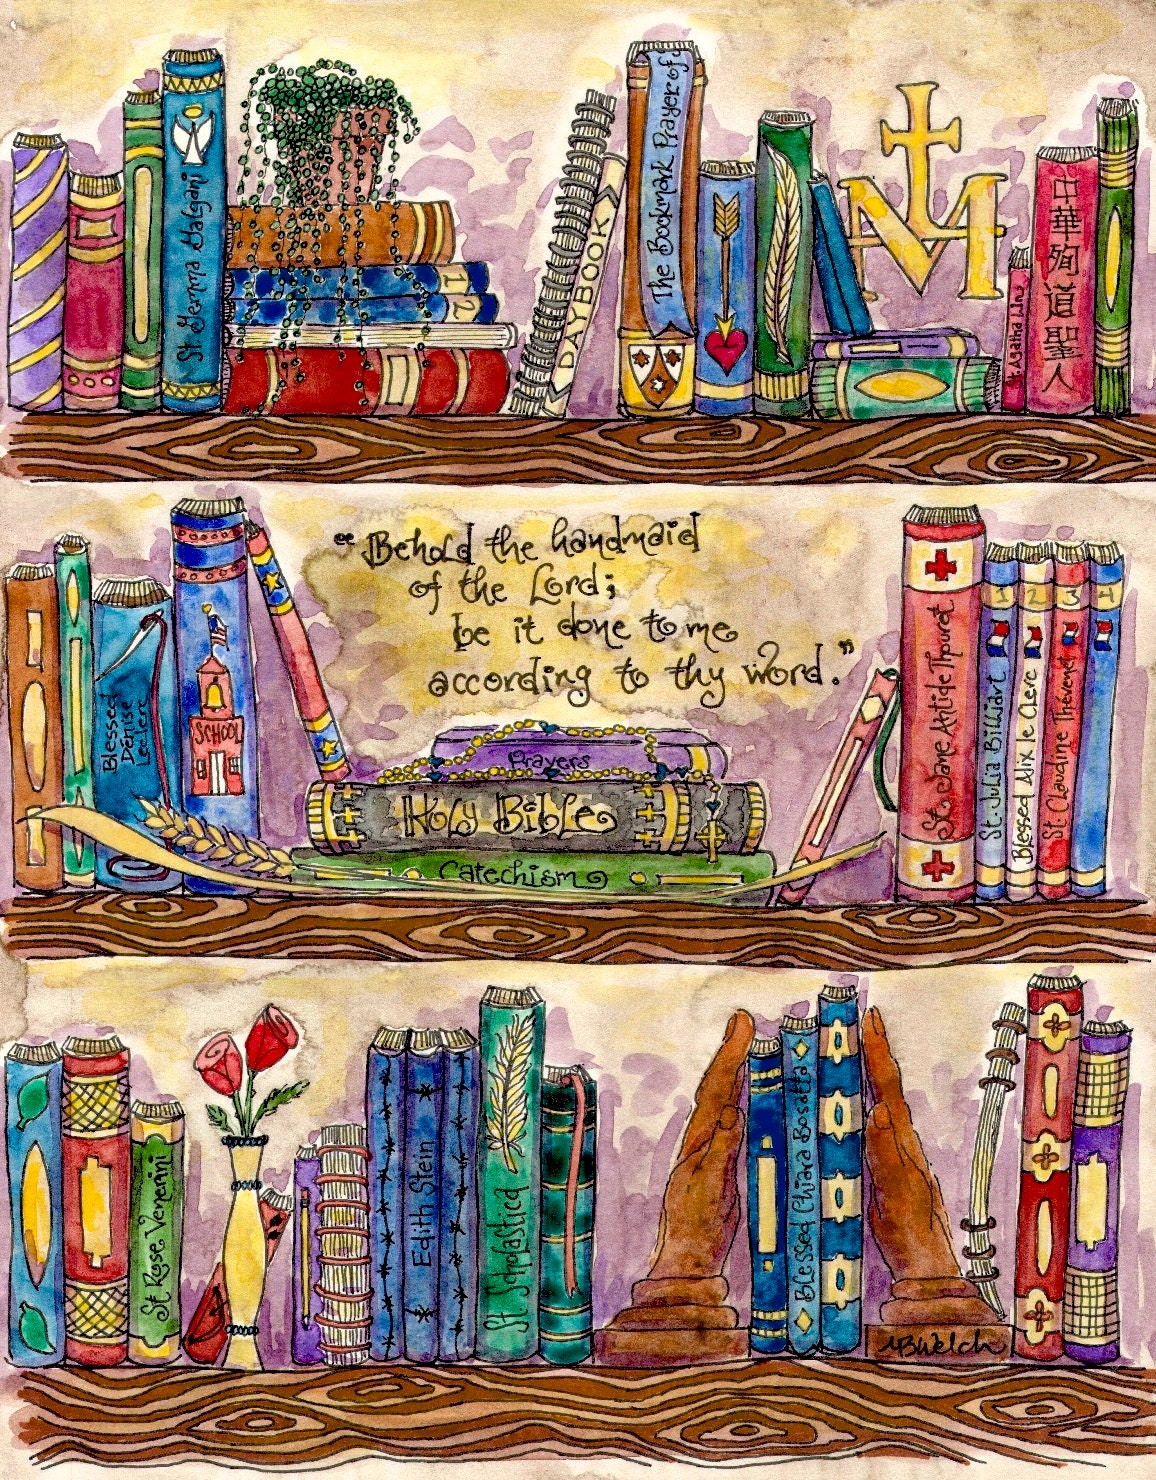 St Gemma Galgani
2
DAYBOOK
The Bookmark Prayer of
St Agatha Lin
中華殉道聖人
"Behold the handmaid
of the Lord;
be it done to me
according to thy word."
Blessed
Dénise
Leclerc
SCHOOL
Prayers
Holy Bible
Catechism
St Jane Antide Thouret
1
St. Julia Billiart
2
Blessed Alix le Clerc
3
St Claudine Thévenet
4
St Rose Venerini
Edith Stein
St Scholastica
Blessed Chiara Bosatta
MBWelch